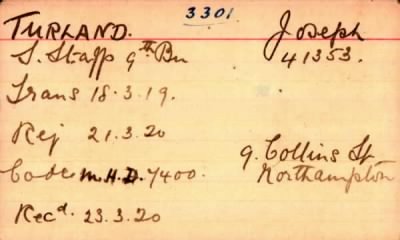 3301
TURLAND. Joseph
S. Staff 9th Bn 41353.
Trans 18.3.19.
Rej 21.3.20
9. Collins St
Code M.H.D. 7400. Northampton
Recd. 23.3.20